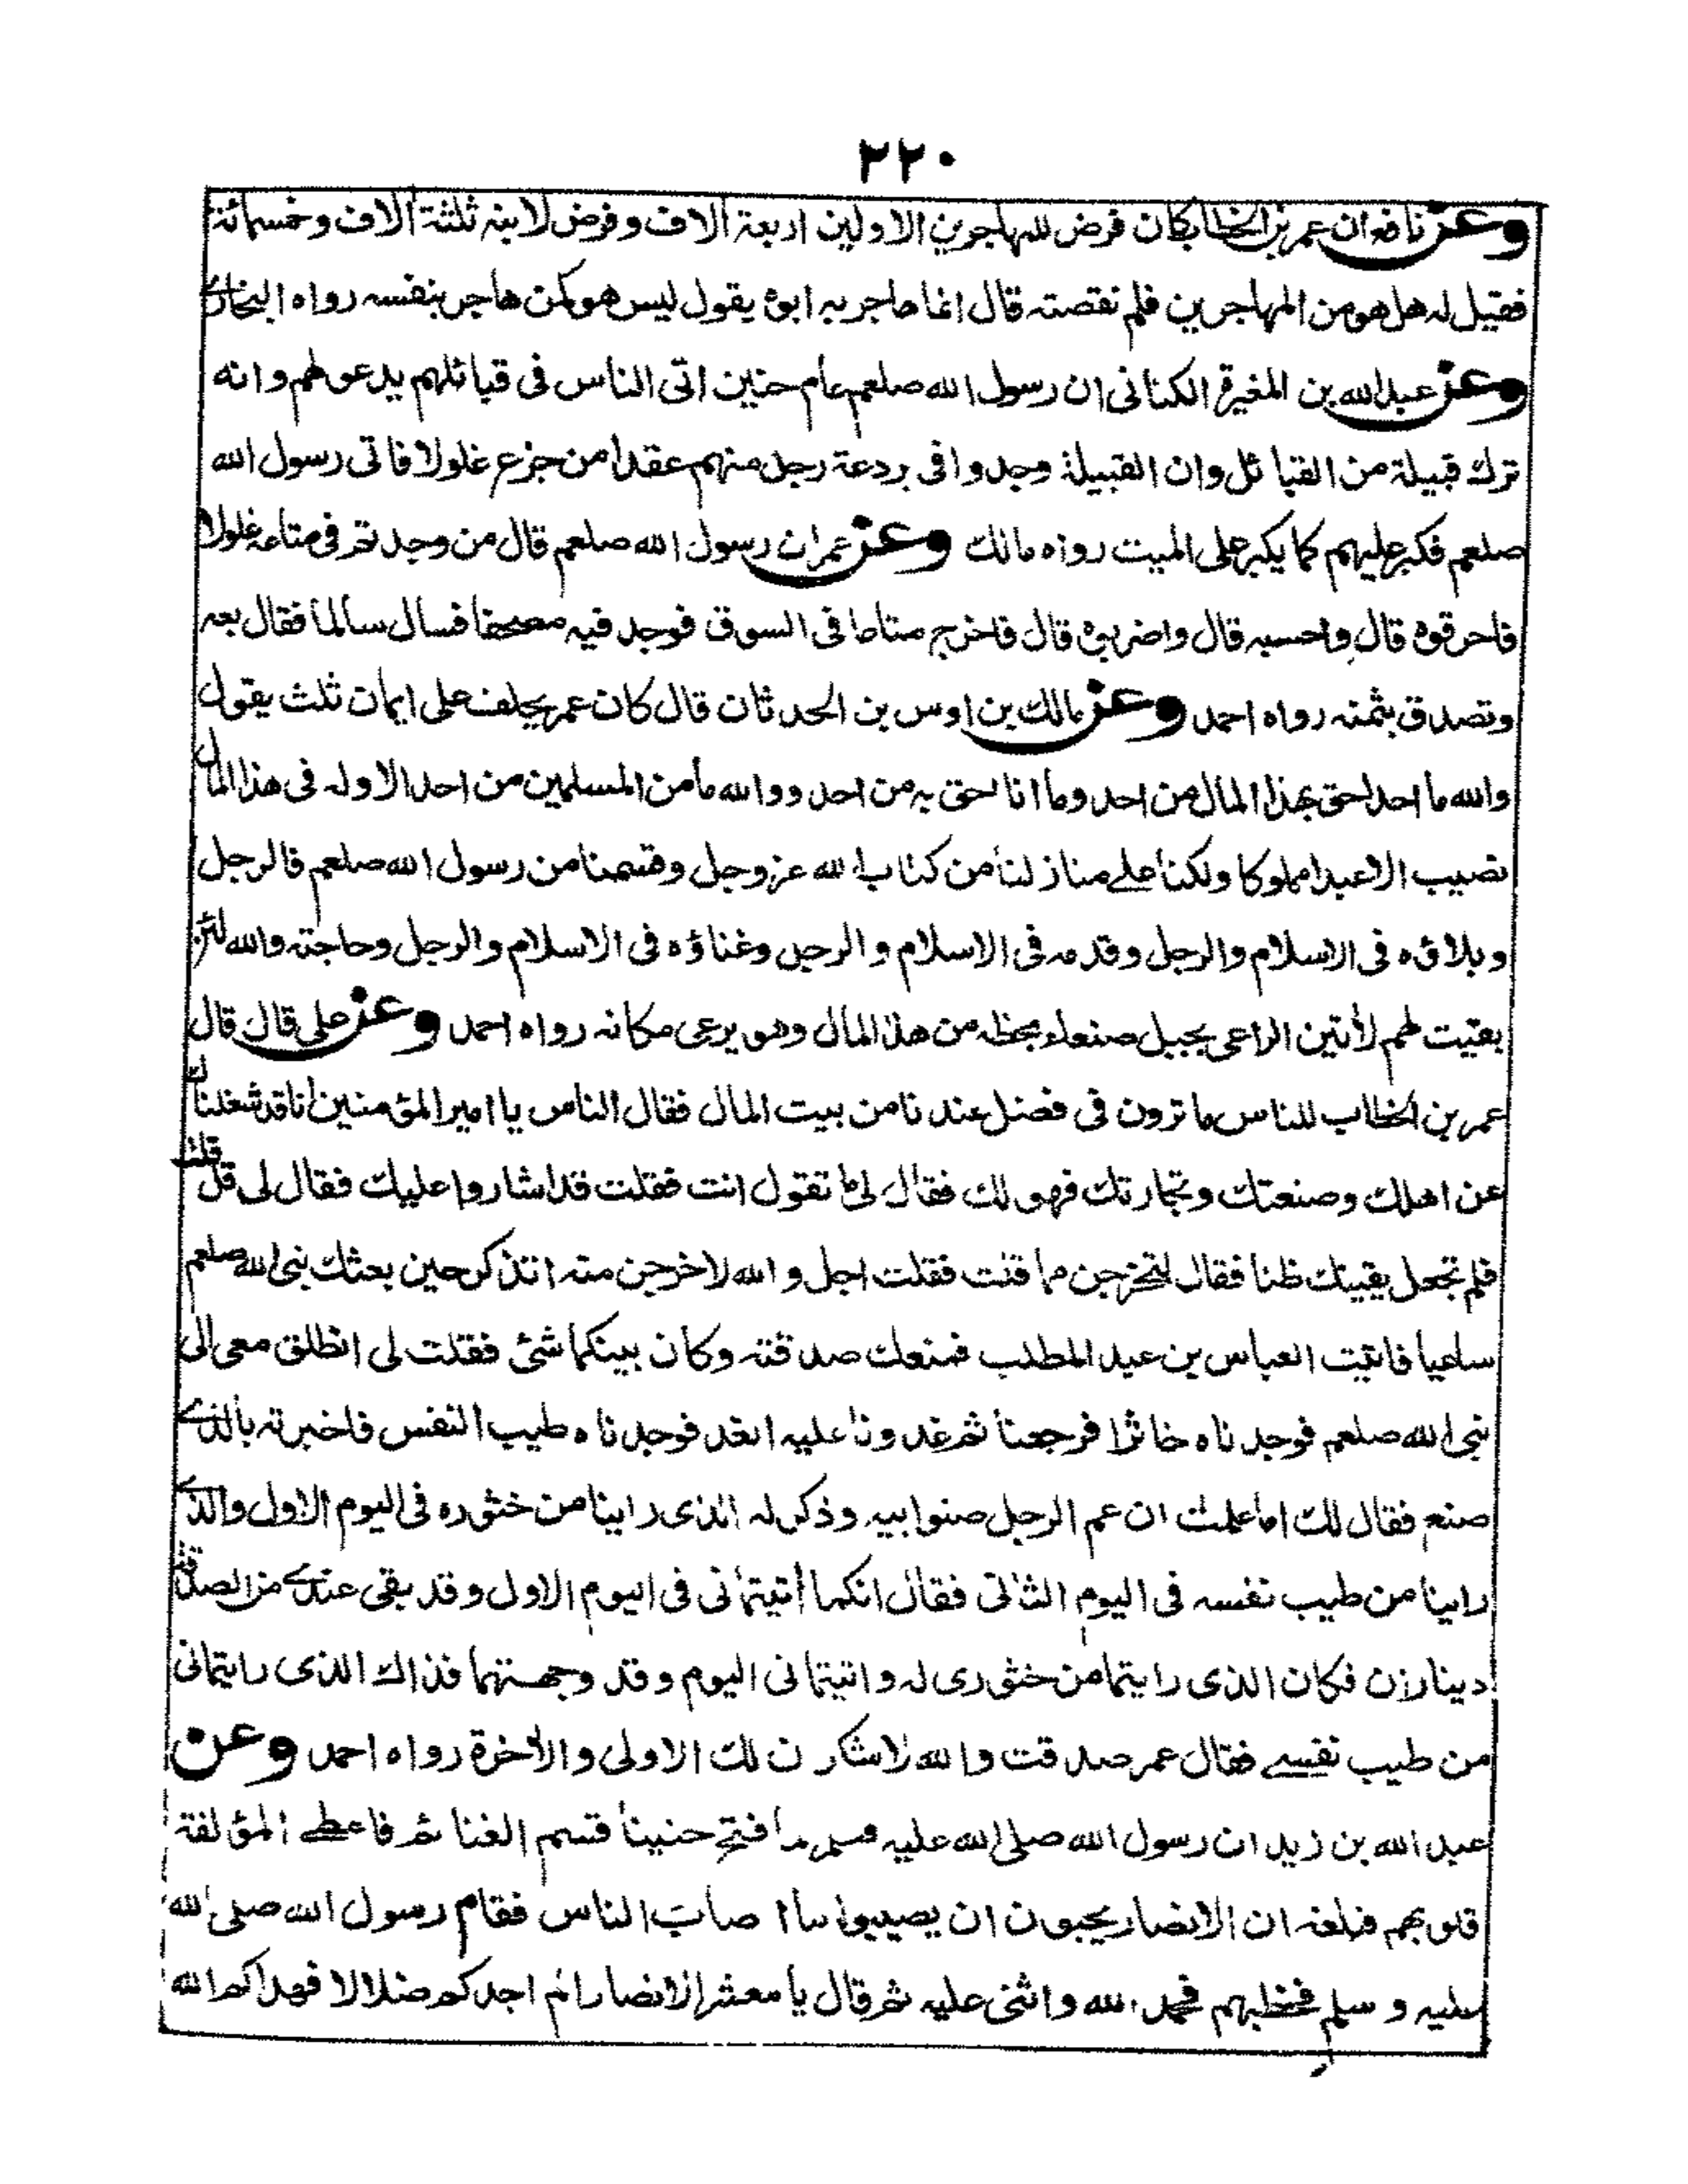 ٢٢٠
وعن نافع ان عمر بن الخطاب كان فرض للمهاجرين الاولين اربعة آلاف وفرض لابنه ثلثة آلاف وخمسمائة
فقيل له هل هو من المهاجرين فلم نقصته قال انما هاجر به ابوه يقول ليس هو كمن هاجر بنفسه رواه البخاري
وعن عبد الله بن المغيرة الكناني ان رسول الله صلعم عام حنين اتى الناس في قبائلهم يدعو لهم وانه
ترك قبيلة من القبائل وان القبيلة وجدوا في بردعة رجل منهم عقدا من جزع غلولا فاتى رسول الله
صلعم فكبر عليهم كما يكبر على الميت رواه مالك وعن عمر ان رسول الله صلعم قال من وجدتم في متاعه غلولا
فاحرقوه قال واحسبه قال واضربوه قال فاخرج متاعا في السوق فوجد فيه مصحفا فسال سالما فقال بعه
وتصدق بثمنه رواه احمد وعن مالك بن اوس بن الحدثان قال كان عمر يحلف على ايمان ثلث يقول
والله ما احد احق بهذا المال من احد وما انا احق به من احد ووالله ما من المسلمين من احد الا وله في هذا المال
نصيب الا عبدا مملوكا ولكنا على منازلنا من كتاب الله عز وجل وقسمنا من رسول الله صلعم فالرجل
وبلاؤه في الاسلام والرجل وقدمه في الاسلام والرجل وغناؤه في الاسلام والرجل وحاجته والله لئن
بقيت لهم لأتين الراعي بجبل صنعاء بحظه من هذا المال وهو يرعى مكانه رواه احمد وعن علي قال قال
عمر بن الخطاب للناس ما ترون في فضل عندنا من بيت المال فقال الناس يا امير المؤمنين انا قد شغلناك
عن اهلك وصنعتك وتجارتك فهو لك فقال لي ما تقول انت فقلت قد اشاروا عليك فقال لي قل قلت
فلم تجعل يقينك ظنا فقال لتخرجن مما قلت فقلت اجل والله لاخرجن منه اتذكر حين بعثك نبي الله صلعم
ساعيا فاتيت العباس بن عبد المطلب فمنعك صدقته وكان بينكما شئ فقلت لي انطلق معي الى
نبي الله صلعم فوجدناه خاثرا فرجعنا ثم غدونا عليه الغد فوجدناه طيب النفس فاخبرته بالذي
صنع فقال لك اما علمت ان عم الرجل صنو ابيه وذكر له الذي راينا من خثوره في اليوم الاول والذي
راينا من طيب نفسه في اليوم الثاني فقال انكما أتيتماني في اليوم الاول وقد بقي عندي من الصدقة
ديناران فكان الذي رايتما من خثوري له واتيتماني اليوم وقد وجهتهما فذاك الذي رايتماني
من طيب نفسي فقال عمر صدقت والله لاشكرن لك الاولى والاخرة رواه احمد وعن
عبد الله بن زيد ان رسول الله صلى الله عليه وسلم لما فتح حنينا قسم الغنائم فاعطى المؤلفة
قلوبهم فبلغه ان الانصار يحبون ان يصيبوا ما اصاب الناس فقام رسول الله صلى الله
عليه وسلم فخطبهم فحمد الله واثنى عليه ثم قال يا معشر الانصار الم اجدكم ضلالا فهداكم الله